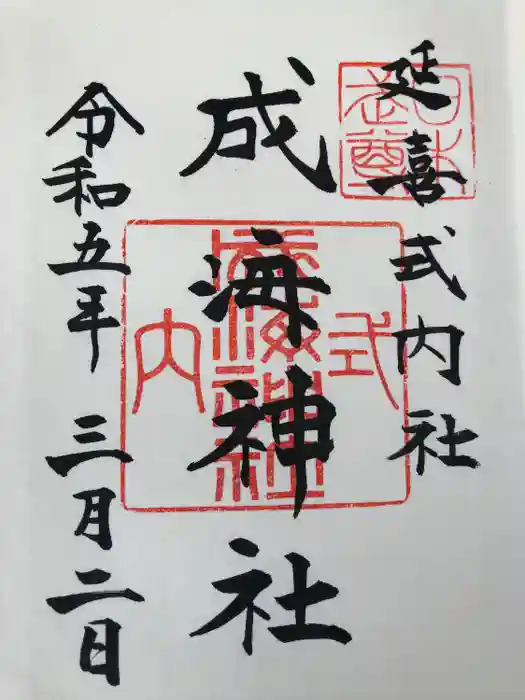 延喜式内社
成海神社
令和五年 三月二日
式内
成海神社